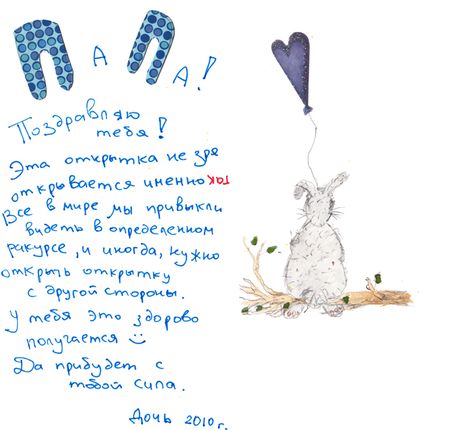 ПАПА!
Поздравляю
тебя!
Эта открытка не зря
открывается именно так
Все в мире мы привыкли
видеть в определенном
ракурсе, и иногда, нужно
открыть открытку
с другой стороны.
У тебя это здорово
получается :)
Да прибудет с
тобой сила.
Дочь 2010 г.